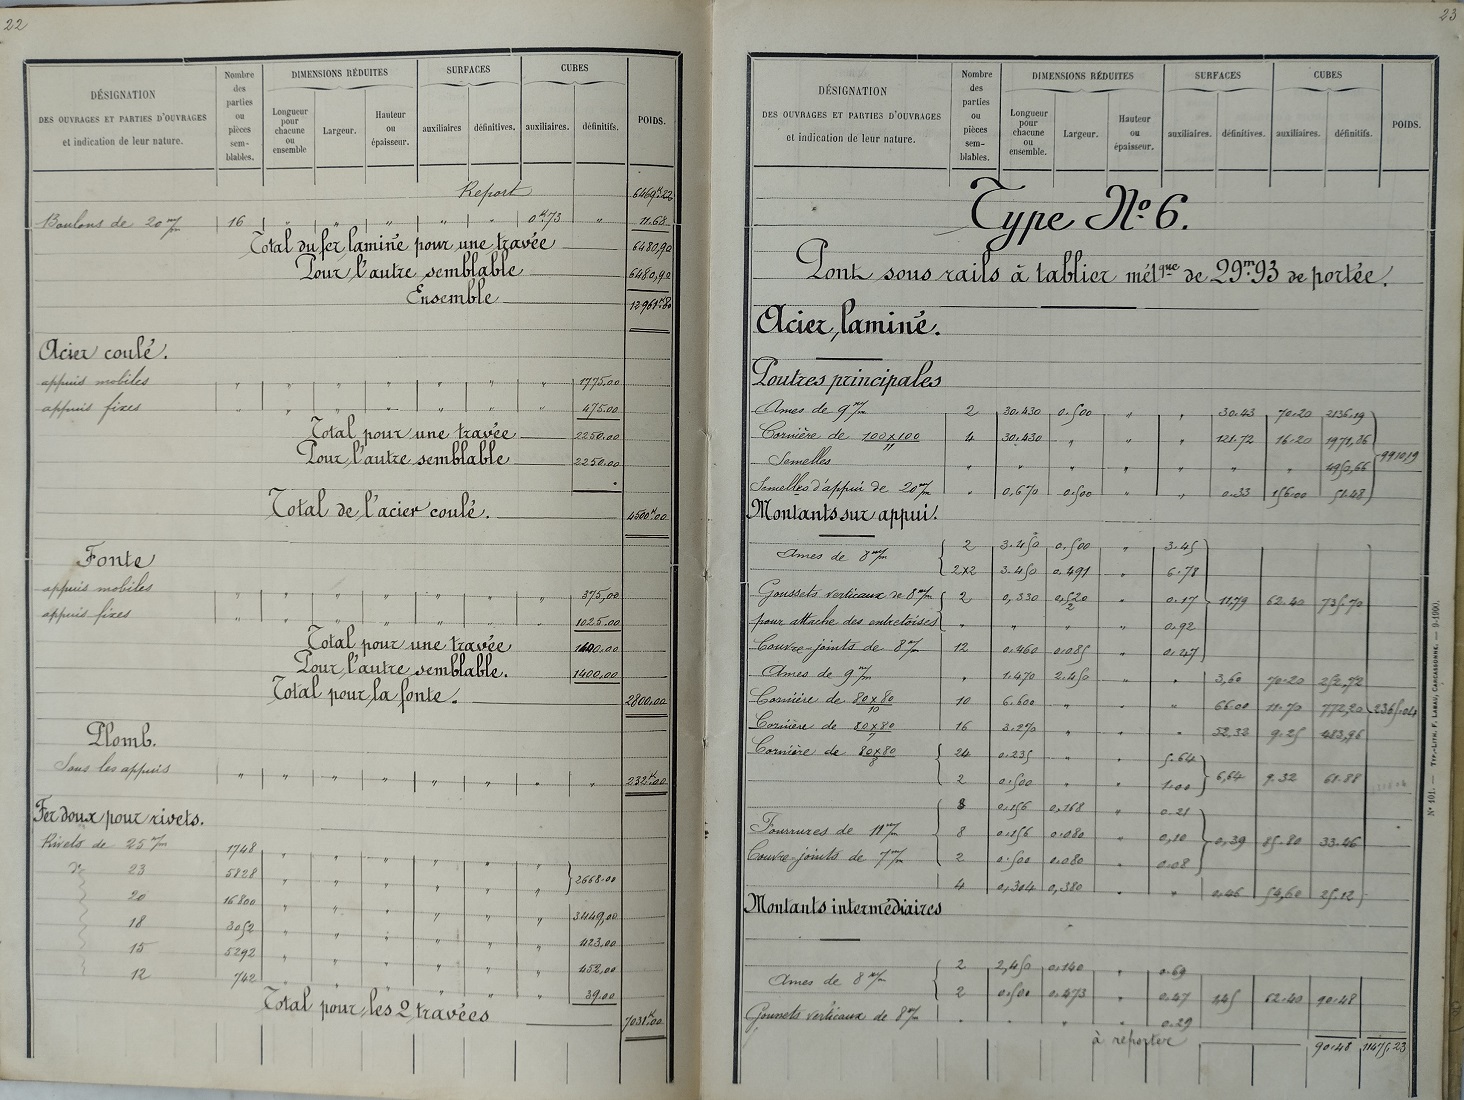 22
DÉSIGNATION
DES OUVRAGES ET PARTIES D'OUVRAGES
et indication de leur nature.
Nombre des parties ou pièces sem-blables.
DIMENSIONS RÉDUITES
Longueur pour chacune ou ensemble
Largeur.
Hauteur ou épaisseur.
SURFACES
auxiliaires
définitives.
CUBES
auxiliaires.
définitifs.
POIDS.
Report 6469k22
Boulons de 20 m/m 16 " " " " " 0k73 " 11.68
Total du fer laminé pour une travée 6480,90
Pour l'autre semblable 6480,90
Ensemble 12961k80
Acier coulé.
appuis mobiles " " " " " " " 1775.00
appuis fixes " " " " " " " 475.00
Total pour une travée 2250.00
Pour l'autre semblable 2250.00
Total de l'acier coulé. 4500k00
Fonte
appuis mobiles " " " " " " " 375,00
appuis fixes " " " " " " " 1025.00
Total pour une travée 1400.00
Pour l'autre semblable. 1400.00
Total pour la fonte. 2800.00
Plomb.
Sous les appuis " " " " " " " " 232k00
Fer doux pour rivets.
Rivets de 25 m/m 1748 " " " " " "
do 23 5828 " " " " " " 2668.00
20 16800 " " " " " " 3449,00
18 3052 " " " " " " 423.00
15 5292 " " " " " " 452.00
12 742 " " " " " " 39.00
Total pour les 2 travées 7031k00
23
DÉSIGNATION
DES OUVRAGES ET PARTIES D'OUVRAGES
et indication de leur nature.
Nombre des parties ou pièces sem-blables.
DIMENSIONS RÉDUITES
Longueur pour chacune ou ensemble.
Largeur.
Hauteur ou épaisseur.
SURFACES
auxiliaires.
définitives.
CUBES
auxiliaires.
définitifs.
POIDS.
Type No 6.
Pont sous rails à tablier métque de 29m93 de portée.
Acier laminé.
Poutres principales
Ames de 9 m/m 2 30.430 0.500 " " 30.43 70.20 2136.19
Cornière de 100x100/11 4 30.430 " " " 121.72 16.20 1971,26
Semelles " " " " " " " 4950,66 9910,19
Semelles d'appui de 20 m/m " 0.670 0.500 " " 0.33 156.00 51.48
Montants sur appui.
Ames de 8 m/m 2 3.450 0.500 " 3.45
2x2 3.450 0.491 " 6.78
Goussets verticaux de 8 m/m 2 0,330 0,520/2 " 0.17 11,79 62.40 735.70
pour attache des entretoises " " " " 0.92
Couvre-joints de 8 m/m 12 0.460 0.085 " 0.47
Ames de 9 m/m " 1.470 2.450 " " 3,60 70.20 252,72
Cornière de 80x80/10 10 6.600 " " " 66.00 11.70 772,20 2365.04
Cornière de 80x80 16 3.270 " " " 52.32 9.25 483,96
Cornière de 80x80 24 0.235 " " 5.64
2 0.500 " " 1.00 6,64 9.32 61.88
8 0.156 0,168 " 0.21
Fourrures de 11 m/m 8 0.156 0.080 " 0,10 0,39 85.80 33.46
Couvre-joints de 7 m/m 2 0.500 0.080 " 0.08
4 0,304 0,380 " " 0.46 54,60 25.12
Montants intermédiaires
Ames de 8 m/m 2 2,450 0.140 " 0.69
2 0.500 0.473 " 0.47 1.45 62.40 90.48
Goussets verticaux de 8 m/m " " " " 0.29
à reporter 90.48 11475,23
No 101. — TYP.-LITH. F. LABAU, CARCASSONNE. — 9-1900.